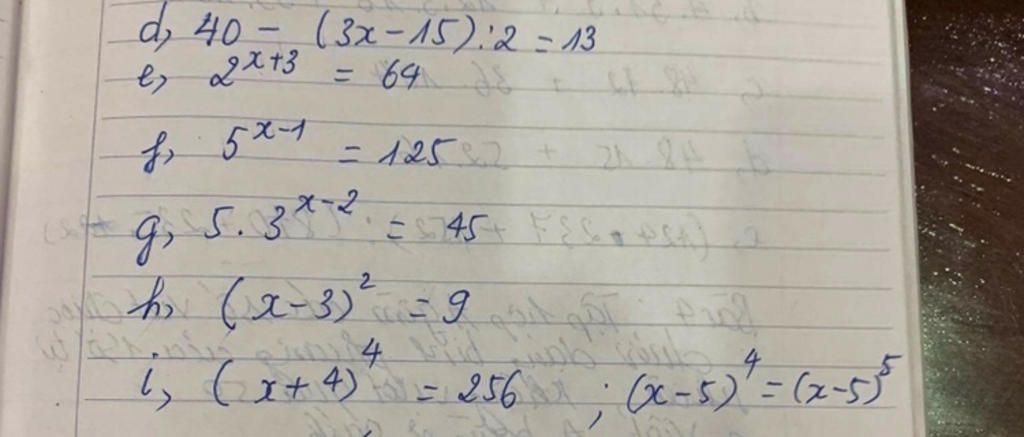 d, 40 - (3x-15):2 = 13
e, 2^{x+3} = 64
f, 5^{x-1} = 125
g, 5.3^{x-2} = 45
h, (x-3)^2 = 9
i, (x+4)^4 = 256 ; (x-5)^4 = (x-5)^5